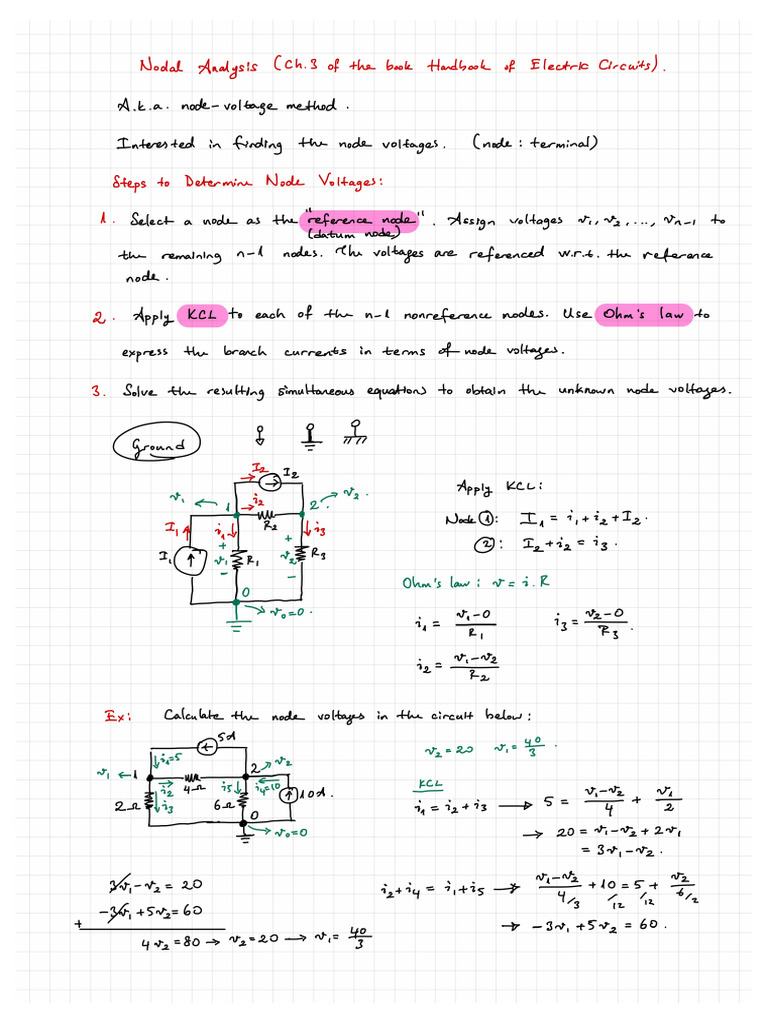 Nodal Analysis (Ch.3 of the book Handbook of Electric Circuits).
A.k.a. node-voltage method.
Interested in finding the node voltages. (node: terminal)
Steps to Determine Node Voltages:
1. Select a node as the "reference node". Assign voltages v₁, v₂, ..., vₙ₋₁ to
(datum node)
the remaining n-1 nodes. The voltages are referenced w.r.t. the reference
node.
2. Apply KCL to each of the n-1 nonreference nodes. Use Ohm's law to
express the branch currents in terms of node voltages.
3. Solve the resulting simultaneous equations to obtain the unknown node voltages.
Ground
I₂ I₂
v₁ 1 i₂ 2 v₂
I₁ i₁ R₂ i₃
I₁ + v₁ - R₁ + v₂ - R₃
0
v₀=0.
Apply KCL:
Node ①: I₁ = i₁+i₂+I₂.
②: I₂+i₂ = i₃.
Ohm's law: v = i.R
i₁ = (v₁-0)/R₁ i₃ = (v₂-0)/R₃.
i₂ = (v₁-v₂)/R₂
Ex: Calculate the node voltages in the circuit below:
5A
i₁=5 2 v₂
v₁ 1 i₂ 4Ω i₅ i₄=10
2Ω i₃ 6Ω 10A.
0
v₀=0
v₂=20 v₁=40/3.
KCL
i₁ = i₂+i₃ → 5 = (v₁-v₂)/4 + v₁/2
→ 20 = v₁-v₂+2v₁
= 3v₁-v₂.
i₂+i₄ = i₁+i₅ → (v₁-v₂)/4 + 10 = 5 + v₂/6
/3 /12 /12 /2
→ -3v₁+5v₂ = 60.
3v₁-v₂ = 20
-3v₁+5v₂=60
+
4v₂=80 → v₂=20 → v₁= 40/3